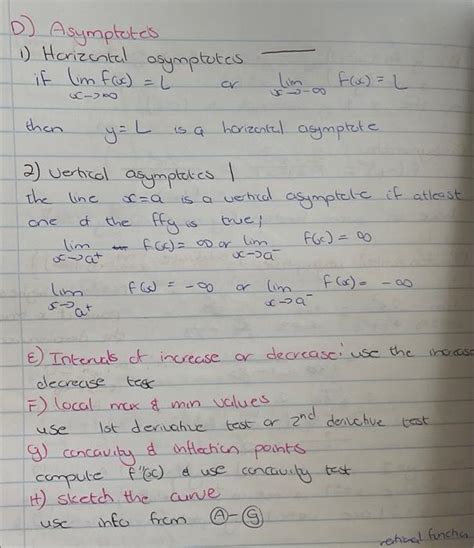 D) Asymptotes
1) Horizontal asymptotes
if lim f(x) = L or lim f(x) = L
x→∞ x→-∞
then y = L is a horizontal asymptote
2) vertical asymptotes |
The line x=a is a vertical asymptote if atleast
one of the ffg is true;
lim f(x) = ∞ or lim f(x) = ∞
x→a⁺ x→a⁻
lim f(x) = -∞ or lim f(x) = -∞
x→a⁺ x→a⁻
E) Intervals of increase or decrease: use the increase
decrease test
F) local max & min values
use 1st derivative test or 2nd derivative test
G) concavity & inflection points
compute f''(x) & use concavity test
H) sketch the curve
use info from Ⓐ-Ⓖ
rational function